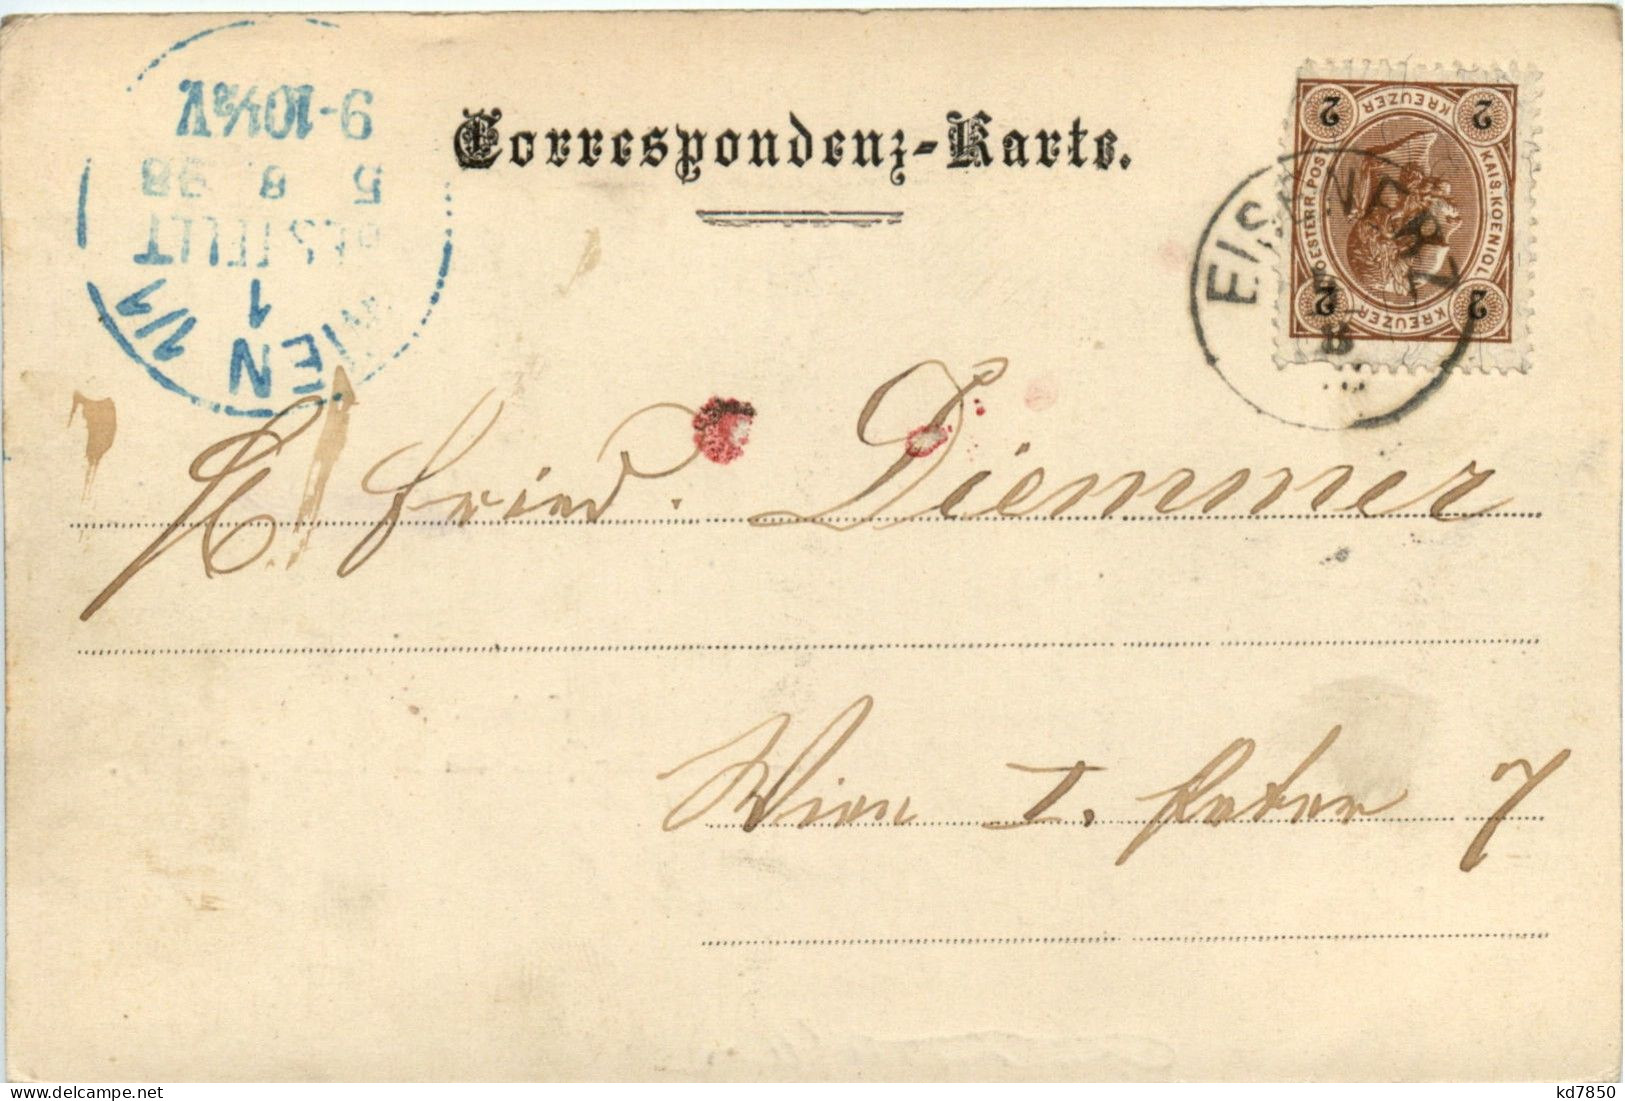 Correspondenz-Karte.
WIEN 1/1
1
BESTELLT
5 8 98
9-10½V
KREUZER
2 2
OESTERR. POST
KAIS. KOENIGL
2 2
KREUZER
EISENERZ
Fried. Diemmer
Wien I. 7
kd7850